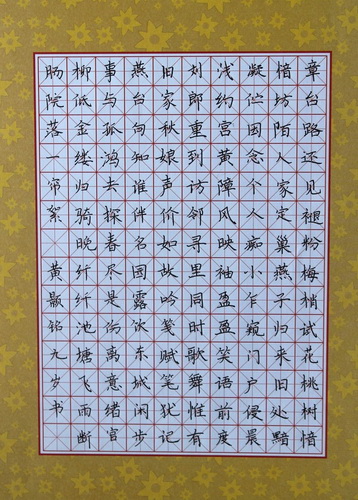 章台路还见褪粉梅梢试花桃树愔
愔坊陌人家定巢燕子归来旧处黯
凝伫因念个人痴小乍窥门户侵晨
浅约宫黄障风映袖盈盈笑语前度
刘郎重到访邻寻里同时歌舞惟有
旧家秋娘声价如故吟笺赋笔犹记
燕台句知谁伴名园露饮东城闲步
事与孤鸿去探春尽是伤离意绪官
柳低金缕归骑晚纤纤池塘飞雨断
肠院落一帘絮 黄颢铭九岁书